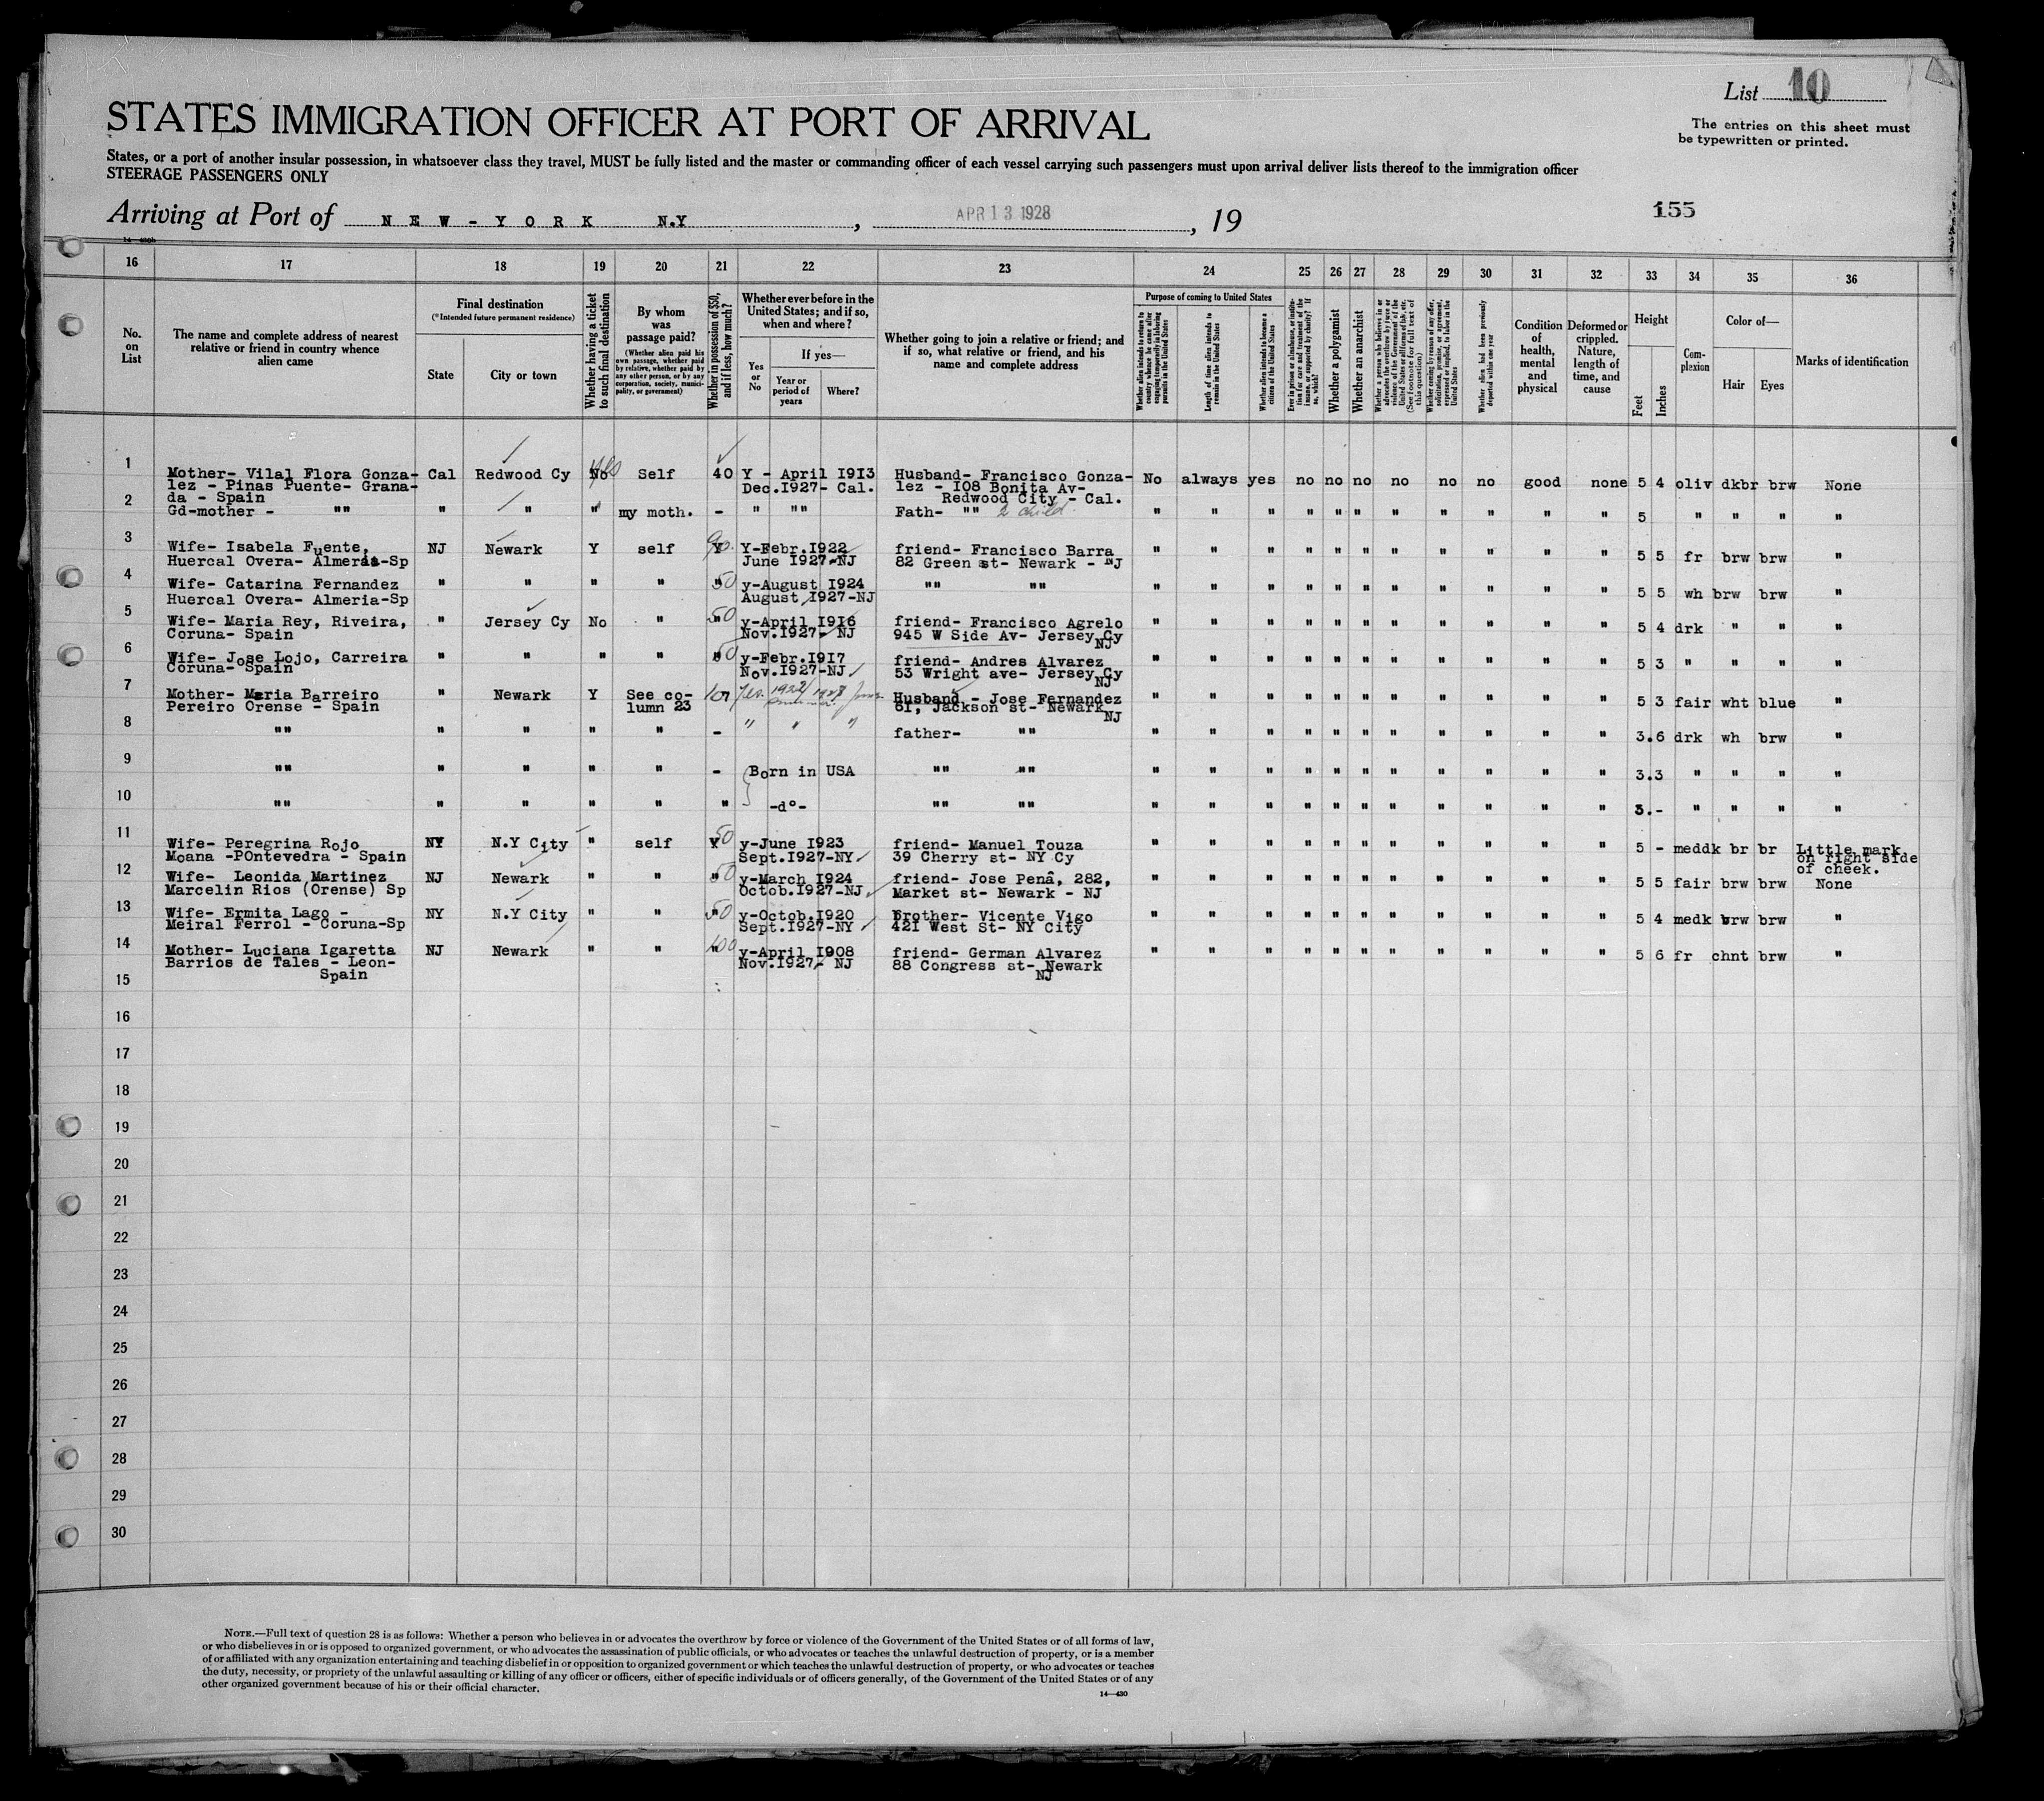 List 10
The entries on this sheet must
be typewritten or printed.
STATES IMMIGRATION OFFICER AT PORT OF ARRIVAL
States, or a port of another insular possession, in whatsoever class they travel, MUST be fully listed and the master or commanding officer of each vessel carrying such passengers must upon arrival deliver lists thereof to the immigration officer
STEERAGE PASSENGERS ONLY
Arriving at Port of NEW-YORK N.Y , APR 13 1928 , 19 155
16 17 18 19 20 21 22 23 24 25 26 27 28 29 30 31 32 33 34 35 36
No. on List
The name and complete address of nearest relative or friend in country whence alien came
Final destination
(*Intended future permanent residence)
State
City or town
Whether having a ticket to such final destination
By whom was passage paid?
(Whether alien paid his own passage, whether paid by relative, whether paid by any other person, or by any corporation, society, municipality, or government)
Whether in possession of $50, and if less, how much?
Whether ever before in the United States; and if so, when and where?
Yes or No
If yes—
Year or period of years
Where?
Whether going to join a relative or friend; and if so, what relative or friend, and his name and complete address
Purpose of coming to United States
Whether alien intends to return to country whence he came after engaging temporarily in laboring pursuits in the United States
Length of time alien intends to remain in the United States
Whether alien intends to become a citizen of the United States
Ever in prison or almshouse, or institution for care and treatment of the insane, or supported by charity? If so, which?
Whether a polygamist
Whether an anarchist
Whether a person who believes in or advocates the overthrow by force or violence of the Government of the United States or all forms of law, etc. (See footnote for full text of this question)
Whether coming by reason of any offer, solicitation, promise, or agreement, expressed or implied, to labor in the United States
Whether alien had been previously deported within one year
Condition of health, mental and physical
Deformed or crippled. Nature, length of time, and cause
Height
Feet
Inches
Complexion
Color of—
Hair
Eyes
Marks of identification
1 Mother- Vilal Flora Gonza- Cal Redwood Cy No Yes Self 40 Y - April I9I3 Husband- Francisco Gonza- No always yes no no no no no no good none 5 4 oliv dkbr brw None
lez - Pinas Puente- Grana- Dec.I927- Cal. lez - I08 Bonita Av-
da - Spain Redwood City - Cal.
2 Gd-mother - "" " " " my moth. - " "" Fath- "" 2 child " " " " " " " " " " " 5 " " " "
3 Wife- Isabela Fuente, NJ Newark Y self Y Y-Febr.I922 friend- Francisco Barra " " " " " " " " " " " 5 5 fr brw brw "
Huercal Overa- Almeria-Sp June I927-NJ 82 Green st- Newark - NJ
4 Wife- Catarina Fernandez " " " " " 50 y-August I924 "" "" " " " " " " " " " " " 5 5 wh brw brw "
Huercal Overa- Almeria-Sp August I927-NJ
5 Wife- Maria Rey, Riveira, " Jersey Cy No " " 50 y-April I9I6 friend- Francisco Agrelo " " " " " " " " " " " 5 4 drk " " "
Coruna- Spain Nov.I927- NJ 945 W Side Av- Jersey Cy
NJ
6 Wife- Jose Lojo, Carreira " " " " " 50 y-Febr.I9I7 friend- Andres Alvarez " " " " " " " " " " " 5 3 " " " "
Coruna- Spain Nov.I927-NJ 53 Wright ave- Jersey Cy
NJ
7 Mother- Maria Barreiro " Newark Y See co- Yes. 1922/ Husband - Jose Fernandez " " " " " " " " " " " 5 3 fair wht blue "
Pereiro Orense - Spain lumn 23 6I, Jackson st- Newark
NJ
8 "" " " " " - " " " father- "" " " " " " " " " " " " 3.6 drk wh brw "
9 "" " " " " - Born in USA "" "" " " " " " " " " " " " 3.3 " " " "
10 "" " " " " " -do- "" "" " " " " " " " " " " " 3.- " " " "
11 Wife- Peregrina Rojo NY N.Y City " self Y 50 y-June I923 friend- Manuel Touza " " " " " " " " " " " 5 - meddk br br Little mark
Moana -POntevedra - Spain Sept.I927-NY 39 Cherry st- NY Cy on right side
of cheek.
12 Wife- Leonida Martinez NJ Newark " " " 50 y-March I924 friend- Jose Penâ, 282, " " " " " " " " " " " 5 5 fair brw brw None
Marcelin Rios (Orense) Sp Octob.I927-NJ Market st- Newark - NJ
13 Wife- Ermita Lago - NY N.Y City " " " 50 y-Octob.I920 Brother- Vicente Vigo " " " " " " " " " " " 5 4 medk brw brw "
Meiral Ferrol - Coruna-Sp Sept.I927-NY 42I West St- NY City
14 Mother- Luciana Igaretta NJ Newark " " " 100 y-April I908 friend- German Alvarez " " " " " " " " " " " 5 6 fr chnt brw "
Barrios de Tales - Leon- Nov.I927- NJ 88 Congress st- Newark
Spain NJ
15
16
17
18
19
20
21
22
23
24
25
26
27
28
29
30
NOTE.—Full text of question 28 is as follows: Whether a person who believes in or advocates the overthrow by force or violence of the Government of the United States or of all forms of law,
or who disbelieves in or is opposed to organized government, or who advocates the assassination of public officials, or who advocates or teaches the unlawful destruction of property, or is a member
of or affiliated with any organization entertaining and teaching disbelief in or opposition to organized government or which teaches the unlawful destruction of property, or who advocates or teaches
the duty, necessity, or propriety of the unlawful assaulting or killing of any officer or officers, either of specific individuals or of officers generally, of the Government of the United States or of any
other organized government because of his or their official character.
14—430